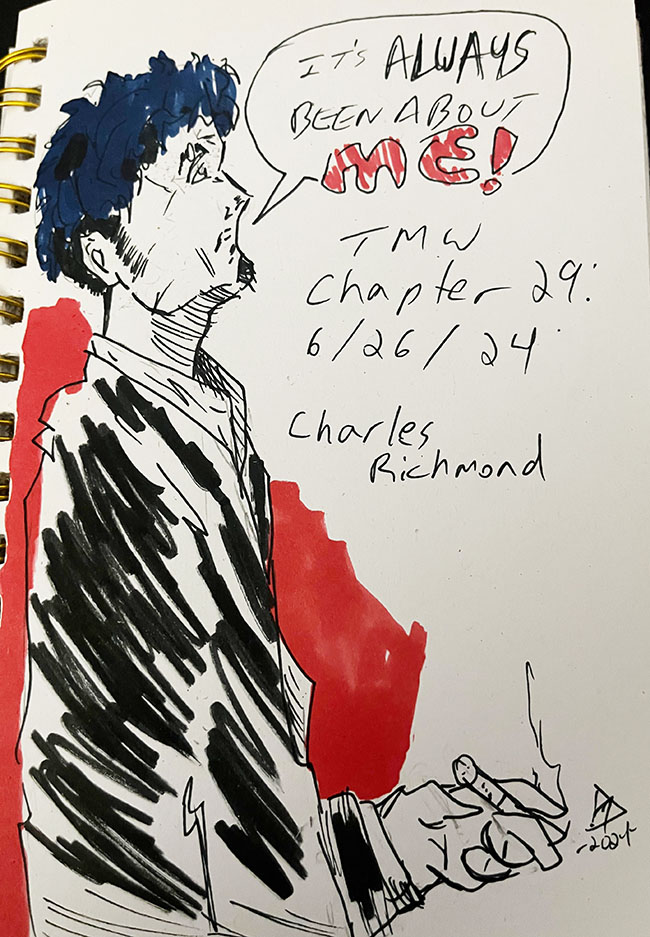 IT'S ALWAYS
BEEN ABOUT
ME!
TMW
Chapter 29:
6/26/24
Charles
Richmond
-2024-